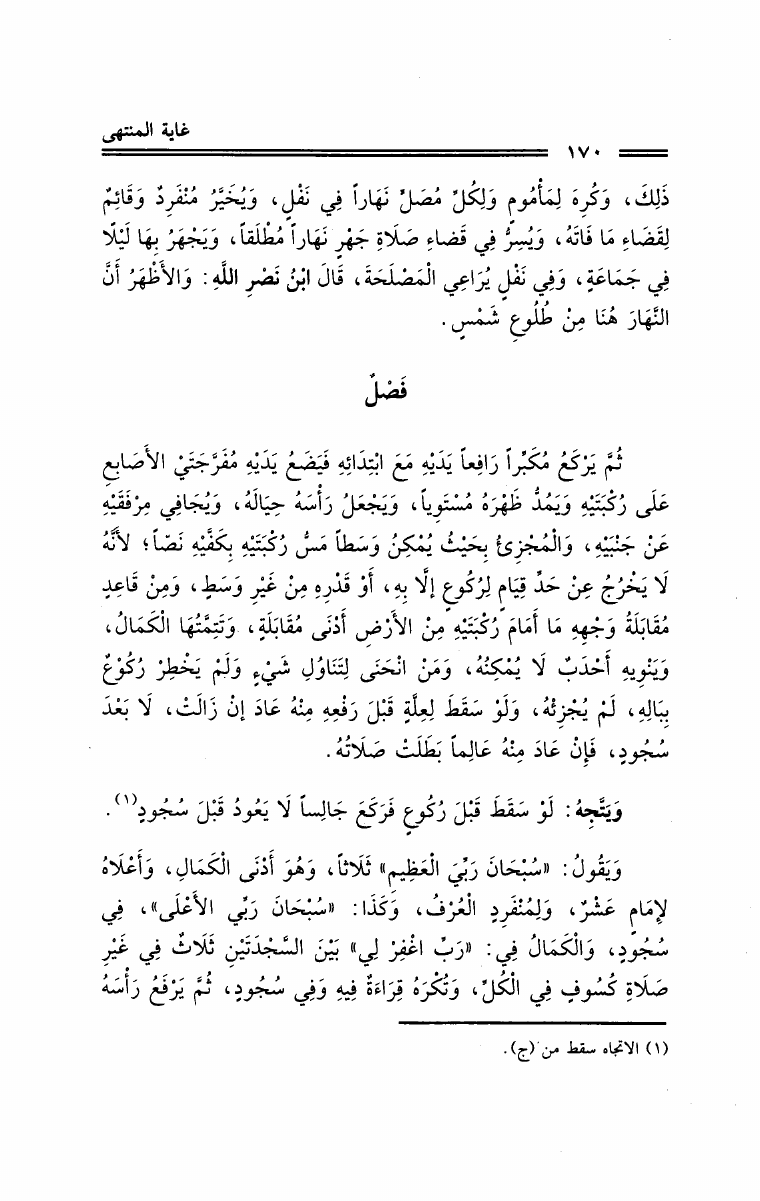 غاية المنتهى
١٧٠
ذَلِكَ، وَكُرِهَ لِمَأْمُومٍ وَلِكُلِّ مُصَلٍّ نَهَاراً فِي نَفْلٍ، وَيُخَيَّرُ مُنْفَرِدٌ وَقَائِمٌ
لِقَضَاءِ مَا فَاتَهُ، وَيُسِرُّ فِي قَضَاءِ صَلَاةِ جَهْرٍ نَهَاراً مُطْلَقاً، وَيَجْهَرُ بِهَا لَيْلًا
فِي جَمَاعَةٍ، وَفِي نَفْلٍ يُرَاعِي الْمَصْلَحَةَ، قَالَ ابْنُ نَصْرِ اللَّهِ: وَالأَظْهَرُ أَنَّ
النَّهَارَ هُنَا مِنْ طُلُوعِ شَمْسٍ.
فَصْلٌ
ثُمَّ يَرْكَعُ مُكَبِّراً رَافِعاً يَدَيْهِ مَعَ ابْتِدَائِهِ فَيَضَعُ يَدَيْهِ مُفَرَّجَتَيْ الأَصَابِعِ
عَلَى رُكْبَتَيْهِ وَيَمُدُّ ظَهْرَهُ مُسْتَوِياً، وَيَجْعَلُ رَأْسَهُ حِيَالَهُ، وَيُجَافِي مِرْفَقَيْهِ
عَنْ جَنْبَيْهِ، وَالْمُجْزِئُ بِحَيْثُ يُمْكِنُ وَسَطاً مَسُّ رُكْبَتَيْهِ بِكَفَّيْهِ نَصّاً؛ لأَنَّهُ
لَا يَخْرُجُ عِنْ حَدِّ قِيَامٍ لِرُكُوعٍ إلَّا بِهِ، أَوْ قَدْرِهِ مِنْ غَيْرِ وَسَطٍ، وَمِنْ قَاعِدٍ
مُقَابَلَةُ وَجْهِهِ مَا أَمَامَ رُكْبَتَيْهِ مِنْ الأَرْضِ أَدْنَى مُقَابَلَةٍ، وَتَتِمَّتُهَا الْكَمَالُ،
وَيَنْوِيهِ أَحْدَبُ لَا يُمْكِنُهُ، وَمَنْ انْحَنَى لِتَنَاوُلِ شَيْءٍ وَلَمْ يَخْطِرْ رُكُوعٌ
بِبَالِهِ، لَمْ يُجْزِئْهُ، وَلَوْ سَقَطَ لِعِلَّةٍ قَبْلَ رَفْعِهِ مِنْهُ عَادَ إنْ زَالَتْ، لَا بَعْدَ
سُجُودٍ، فَإِنْ عَادَ مِنْهُ عَالِماً بَطَلَتْ صَلَاتُهُ.
وَيَتَّجِهُ: لَوْ سَقَطَ قَبْلَ رُكُوعٍ فَرَكَعَ جَالِساً لَا يَعُودُ قَبْلَ سُجُودٍ(١).
وَيَقُولُ: «سُبْحَانَ رَبِّيَ الْعَظِيمِ» ثَلَاثاً، وَهُوَ أَدْنَى الْكَمَالِ، وَأَعْلَاهُ
لإِمَامٍ عَشْرٌ، وَلِمُنْفَرِدٍ الْعُرْفُ، وَكَذَا: «سُبْحَانَ رَبِّي الأَعْلَى»، فِي
سُجُودٍ، وَالْكَمَالُ فِي: «رَبِّ اغْفِرْ لِي» بَيْنَ السَّجْدَتَيْنِ ثَلَاثٌ فِي غَيْرِ
صَلَاةِ كُسُوفٍ فِي الْكُلِّ، وَتُكْرَهُ قِرَاءَةٌ فِيهِ وَفِي سُجُودٍ، ثُمَّ يَرْفَعُ رَأْسَهُ
(١) الاتجاه سقط من (ج).